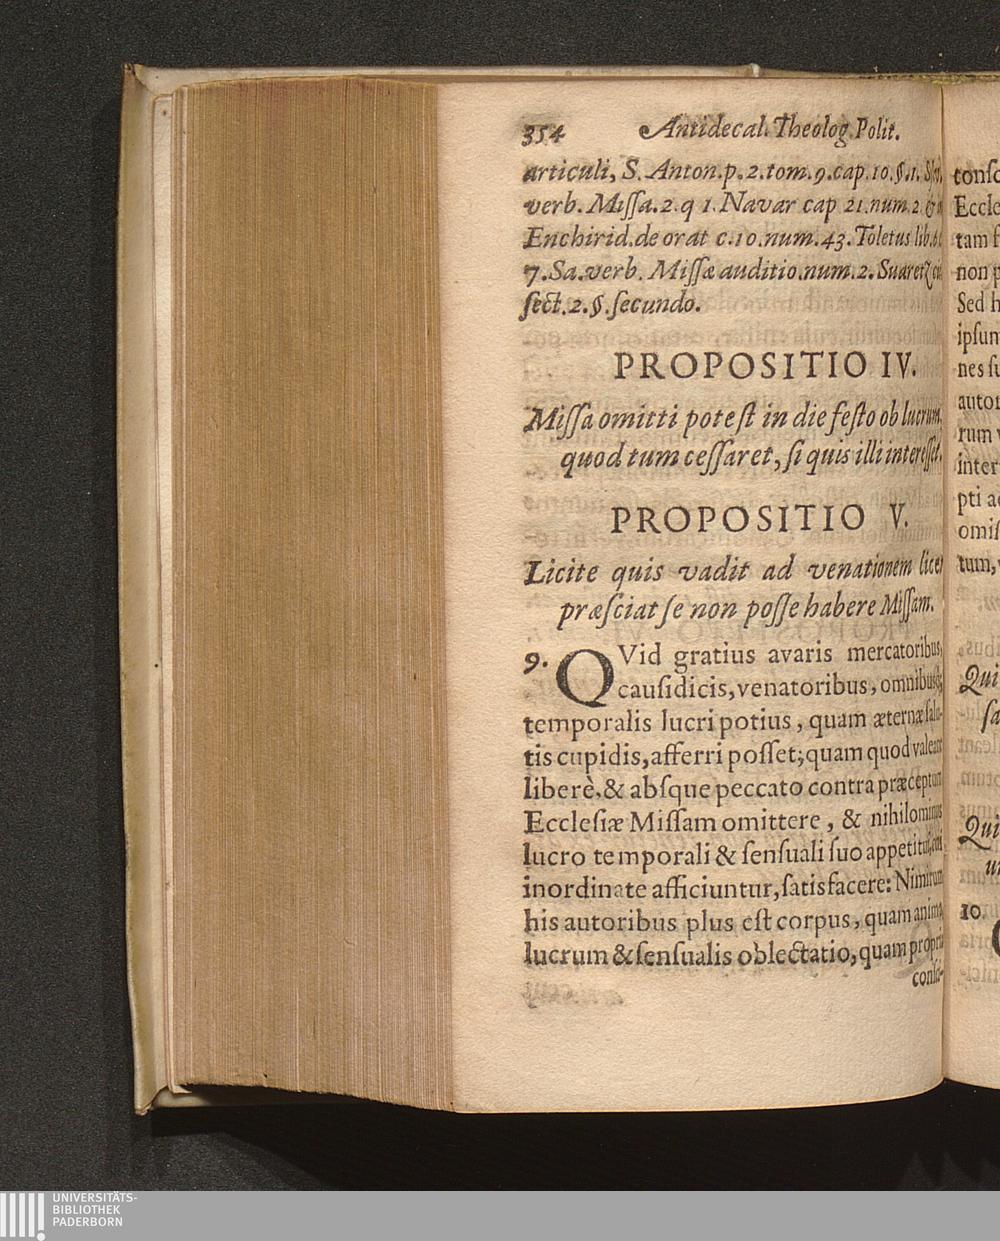 354 Antidecal. Theolog. Polit.
articuli, S. Anton. p. 2. tom. 9. cap. 10. §. 1.
verb. Miſſa. 2. q 1. Navar cap 21. num. 2. &
Enchirid. de orat c. 10. num. 43. Toletus lib. 6.
7. Sa. verb. Miſſæ auditio. num. 2. Suarez
ſect. 2. §. ſecundo.
PROPOSITIO IV.
Miſſa omitti poteſt in die feſto ob lucrum,
quod tum ceſſaret, ſi quis illi intereſſet.
PROPOSITIO V.
Licite quis vadit ad venationem licet
præſciat ſe non poſſe habere Miſſam.
9. QVid gratius avaris mercatoribus,
cauſidicis, venatoribus, omnibuſq;
temporalis lucri potius, quam æternæ ſalu-
tis cupidis, afferri poſſet; quam quod valeant
liberè, & abſque peccato contra præceptum
Eccleſiæ Miſſam omittere, & nihilominus
lucro temporali & ſenſuali ſuo appetitui, cui
inordinate afficiuntur, ſatisfacere: Nimirum
his autoribus plus eſt corpus, quam anima,
lucrum & ſenſualis oblectatio, quam propria
conſci-
Eccle
tam
non
Sed
nes
autor
rum
inter
pti
tum,
Qui
Qui
10.
UNIVERSITÄTS-
BIBLIOTHEK
PADERBORN